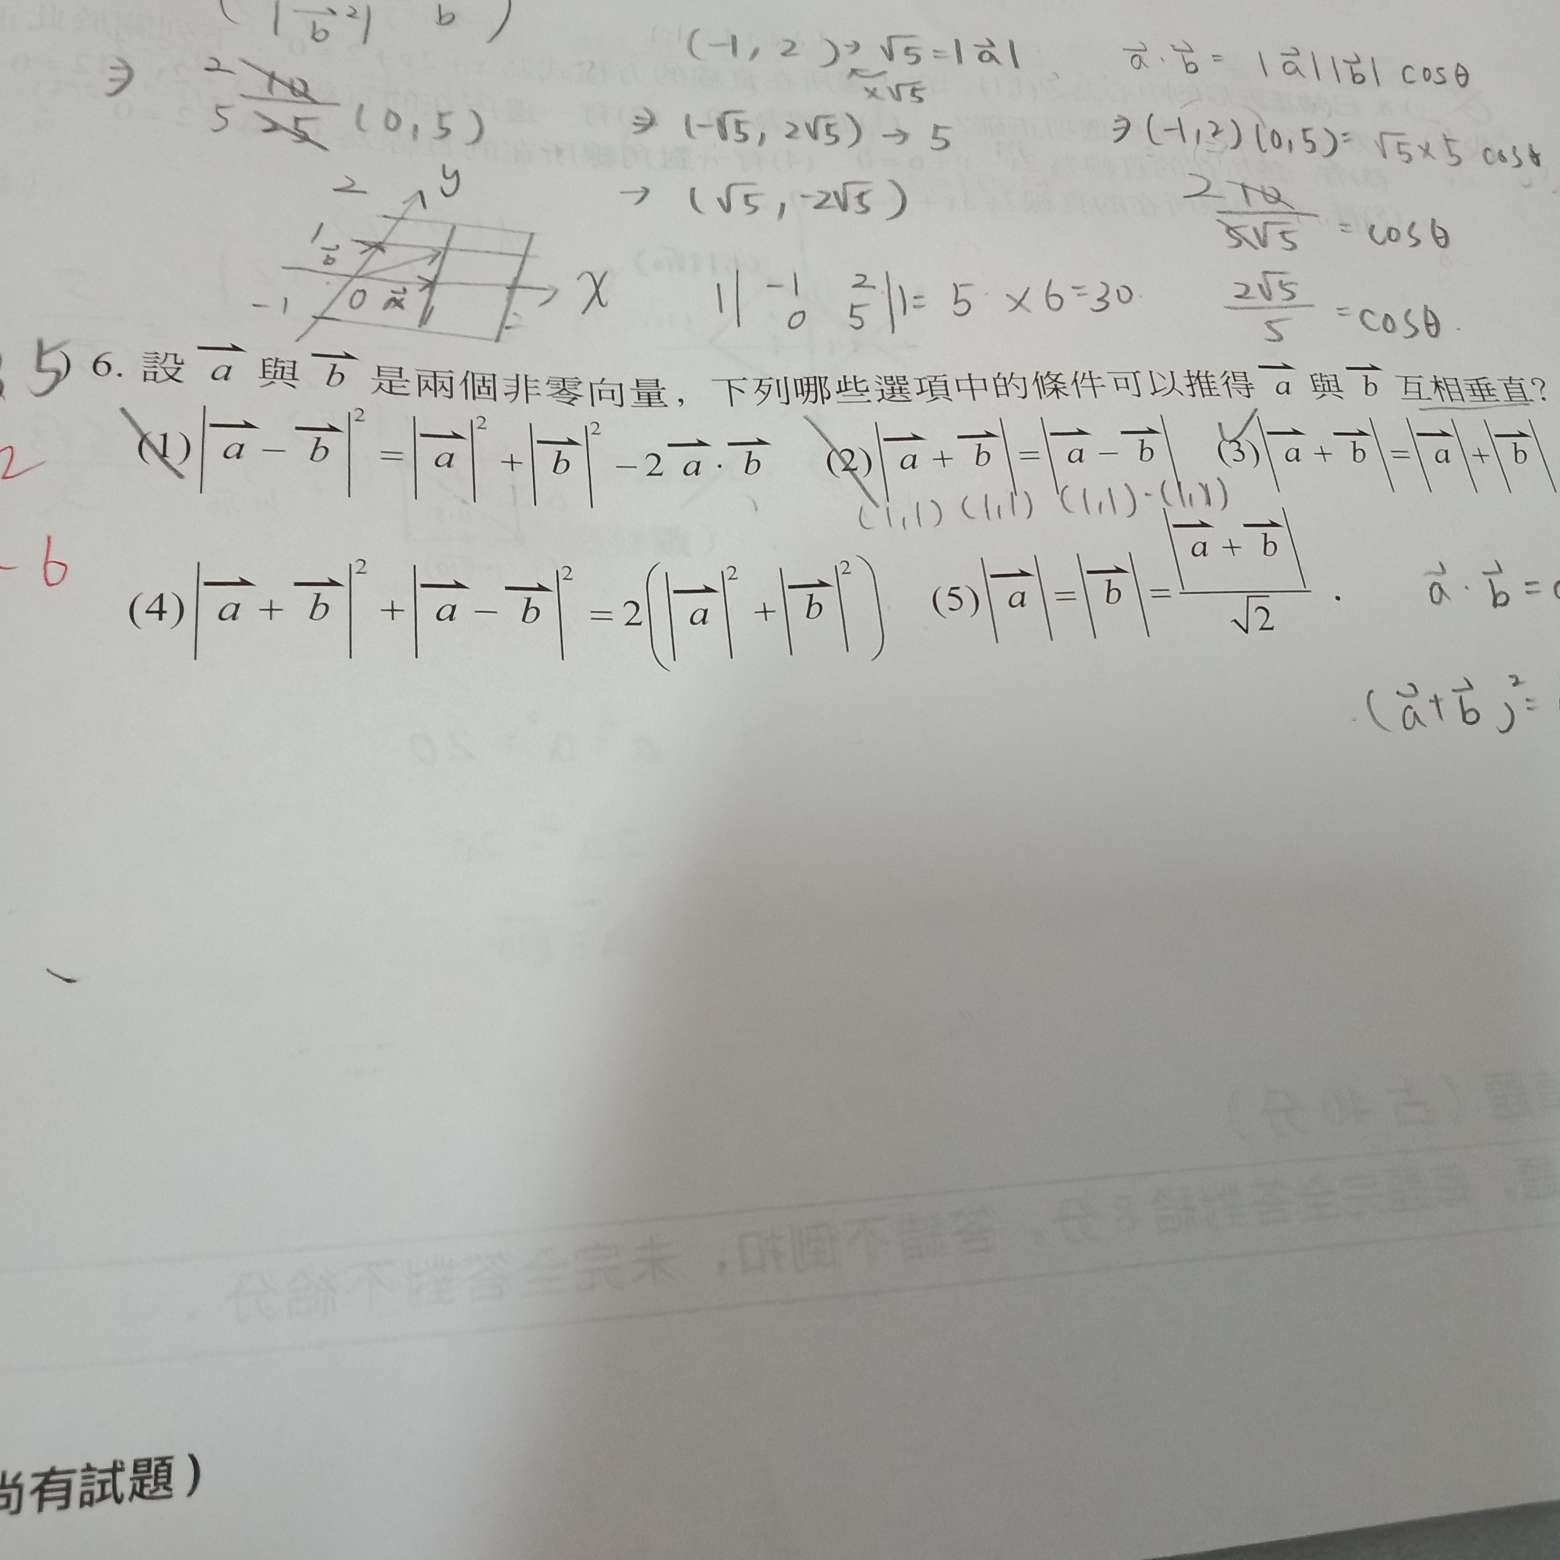 |b²| b )
(-1, 2) → √5 = |a⃗|
×√5
a⃗·b⃗ = |a⃗||b⃗| cosθ
⇒ 2 10 / 5 25 (0, 5)
⇒ (-√5, 2√5) → 5
⇒ (-1, 2)(0, 5) = √5 × 5 cosθ
2 y
→ (√5, -2√5)
2 10 / 5√5 = cosθ
1 b⃗
-1 0 a⃗ x
|| -1 2 0 5 || = 5 × 6 = 30
2√5 / 5 = cosθ
5) 6. 設 a⃗ 與 b⃗ 是兩個非零向量，下列哪些選項中的條件可以推得 a⃗ 與 b⃗ 互相垂直?
(1) |a⃗ − b⃗|² = |a⃗|² + |b⃗|² − 2 a⃗ · b⃗ (2) |a⃗ + b⃗| = |a⃗ − b⃗| (3) |a⃗ + b⃗| = |a⃗| + |b⃗|
2
(1,1) (1,1) (1,1)-(1,1)
-6
(4) |a⃗ + b⃗|² + |a⃗ − b⃗|² = 2(|a⃗|² + |b⃗|²) (5) |a⃗| = |b⃗| = |a⃗ + b⃗| / √2 .
a⃗ · b⃗ =
(a⃗ + b⃗)² =
尚有試題）